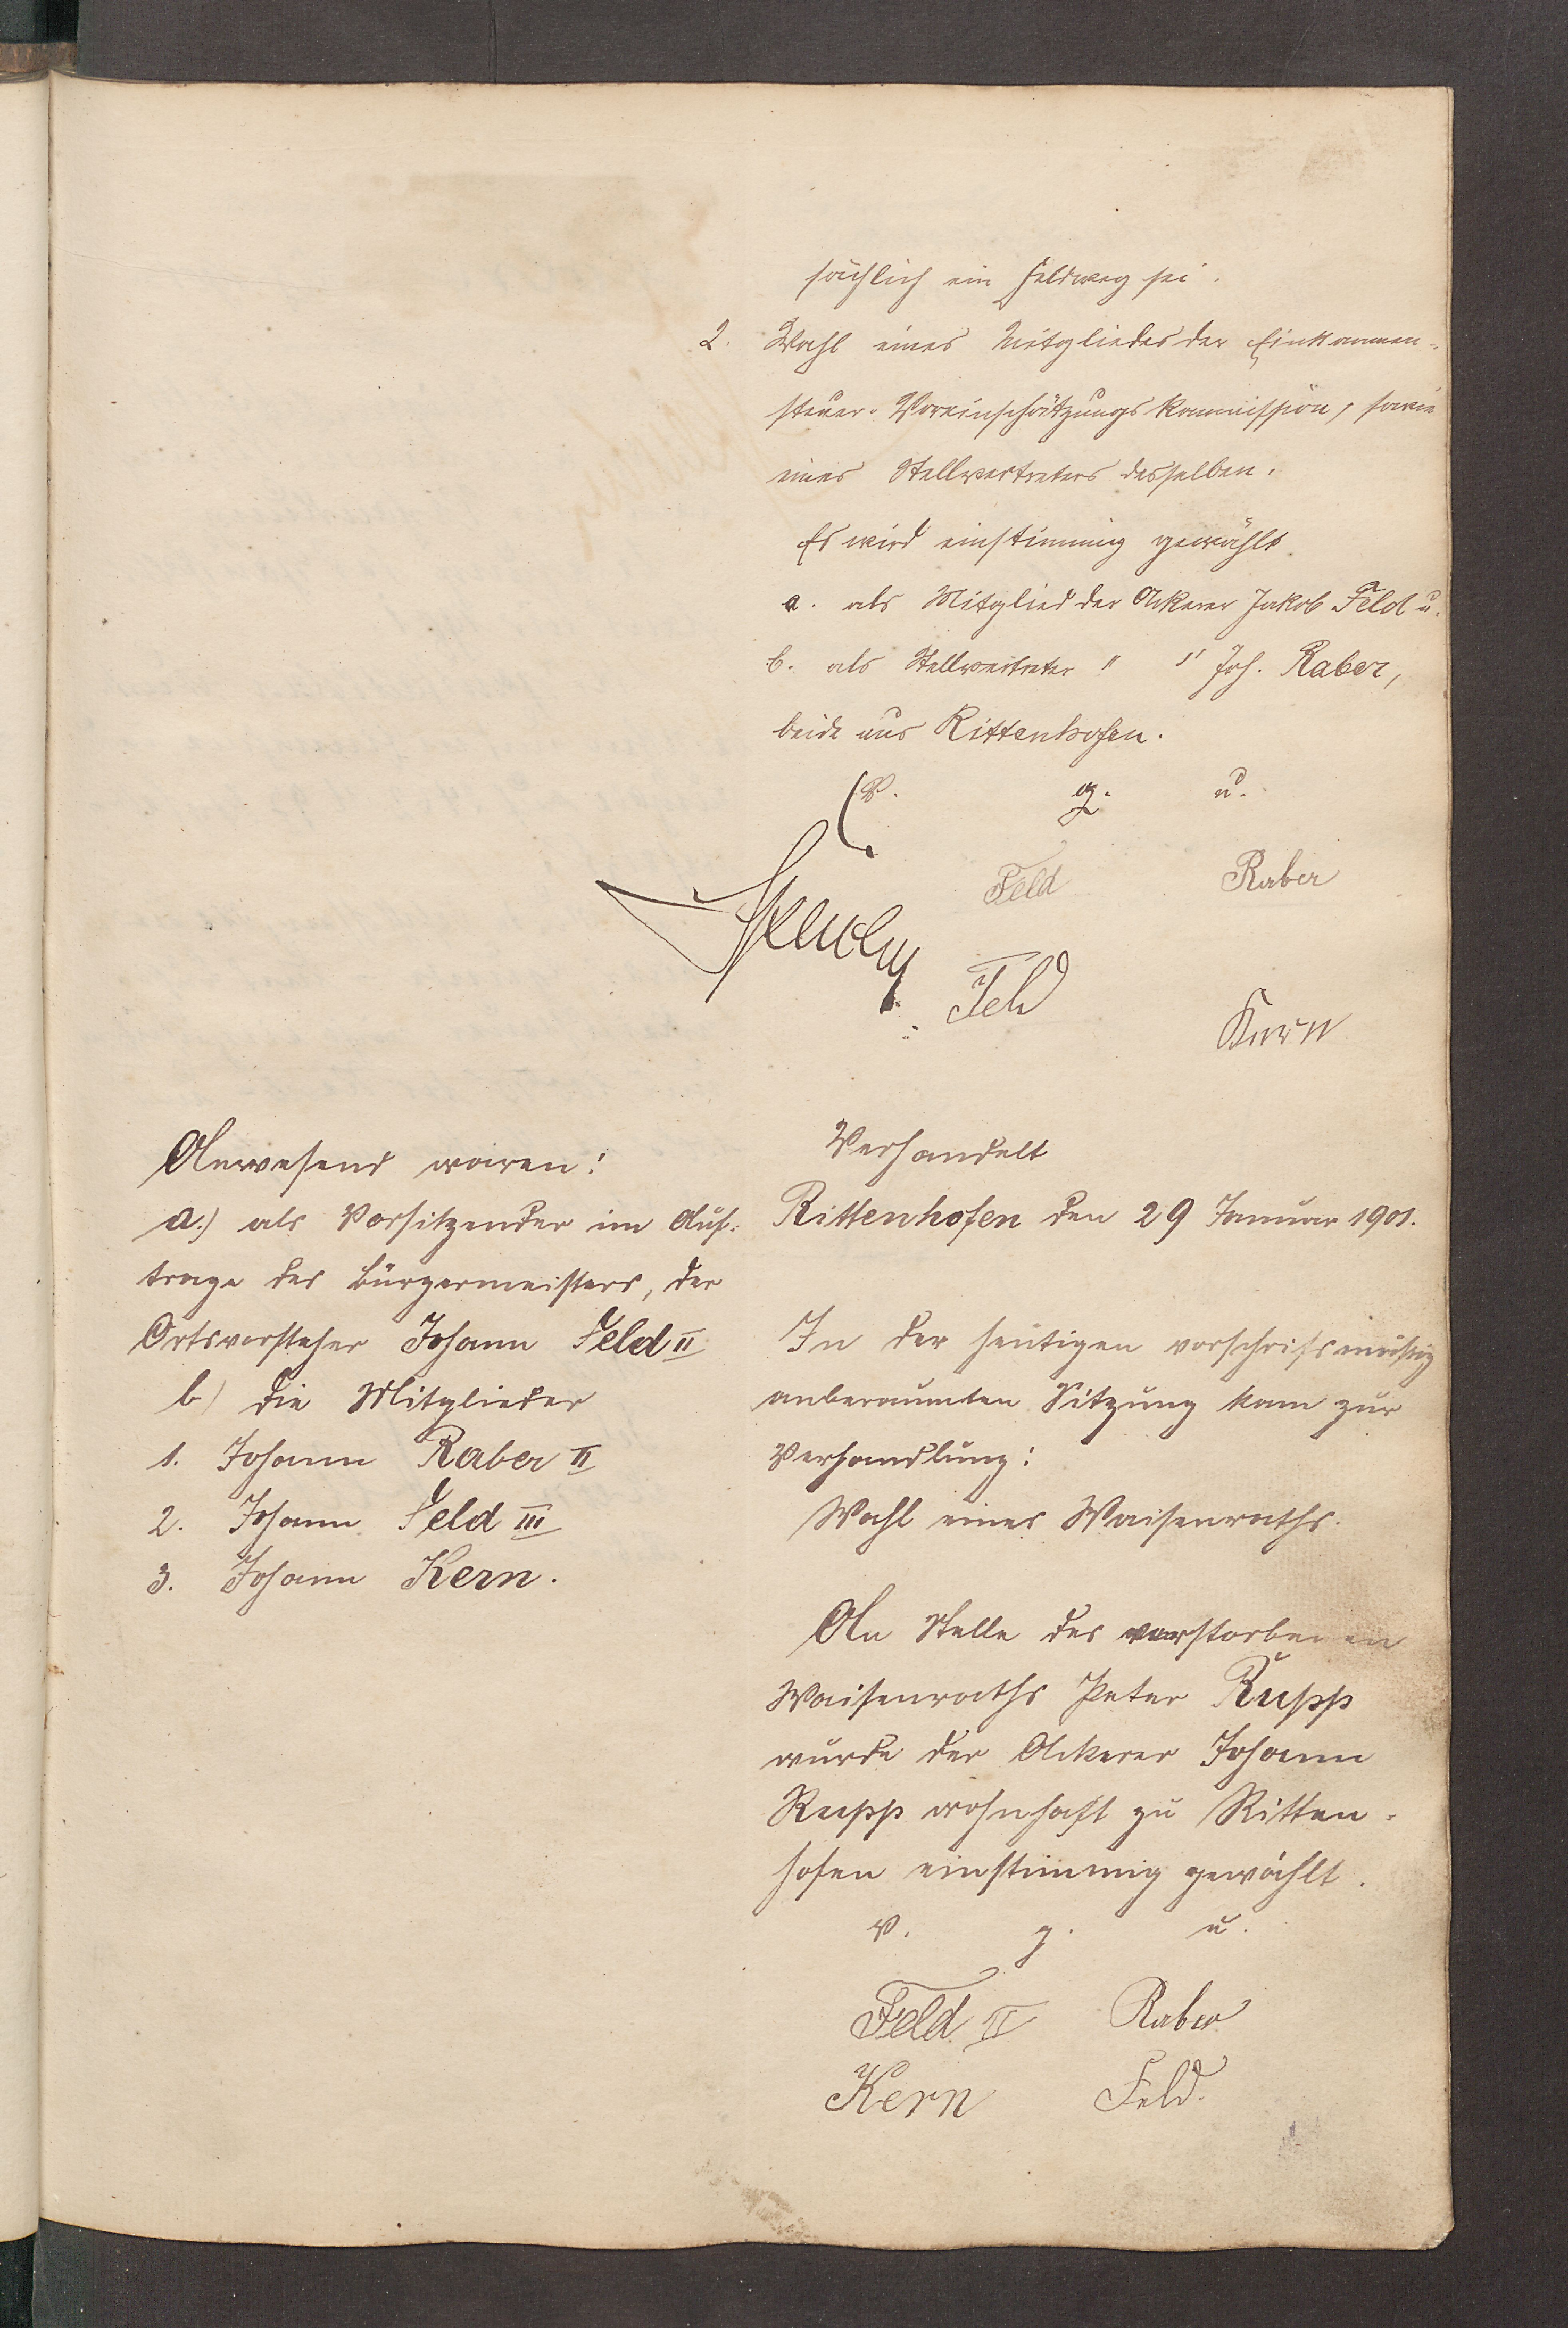 sächlich ein Feldweg sei.
2. Wahl eines Mitgliedes der Einkommen-
steuer-Voreinschätzungskommission, sowie
eines Stellvertreters desselben.
Es wird einstimmig gewählt
a. als Mitglied der Ackerer Jakob Feld u.
b. als Stellvertreter " " Joh. Raber,
beide aus Rittenhofen.
v. g. u.
Feld Raber
Feld
Kern
Anwesend waren:
a.) als Vorsitzender im Auf-
trage des Bürgermeisters, der
Ortsvorsteher Johann Feld II
b) die Mitglieder
1. Johann Raber II
2. Johann Feld III
3. Johann Kern.
Verhandelt
Rittenhofen den 29 Januar 1901.
In der heutigen vorschrifsmäßig
anberaumten Sitzung kam zur
Verhandlung:
Wahl eines Waisenraths.
An Stelle des verstorbenen
Waisenraths Peter Rupp
wurde der Ackerer Johann
Rupp wohnhaft zu Ritten-
hofen einstimmig gewählt.
v. g. u.
Feld II Raber
Kern Feld.